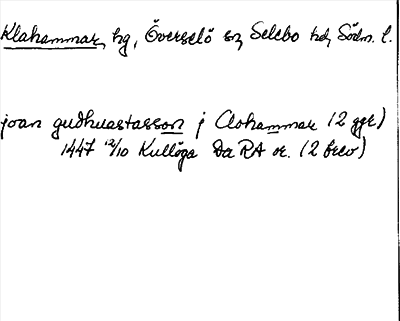 Klahammar, hg, Överselö sn, Selebo hd, Södm. l.
joan gudhuastasson j Clohammar (2 ggr)
1447 12/10 Kullöga Da RA or. (2 brev)